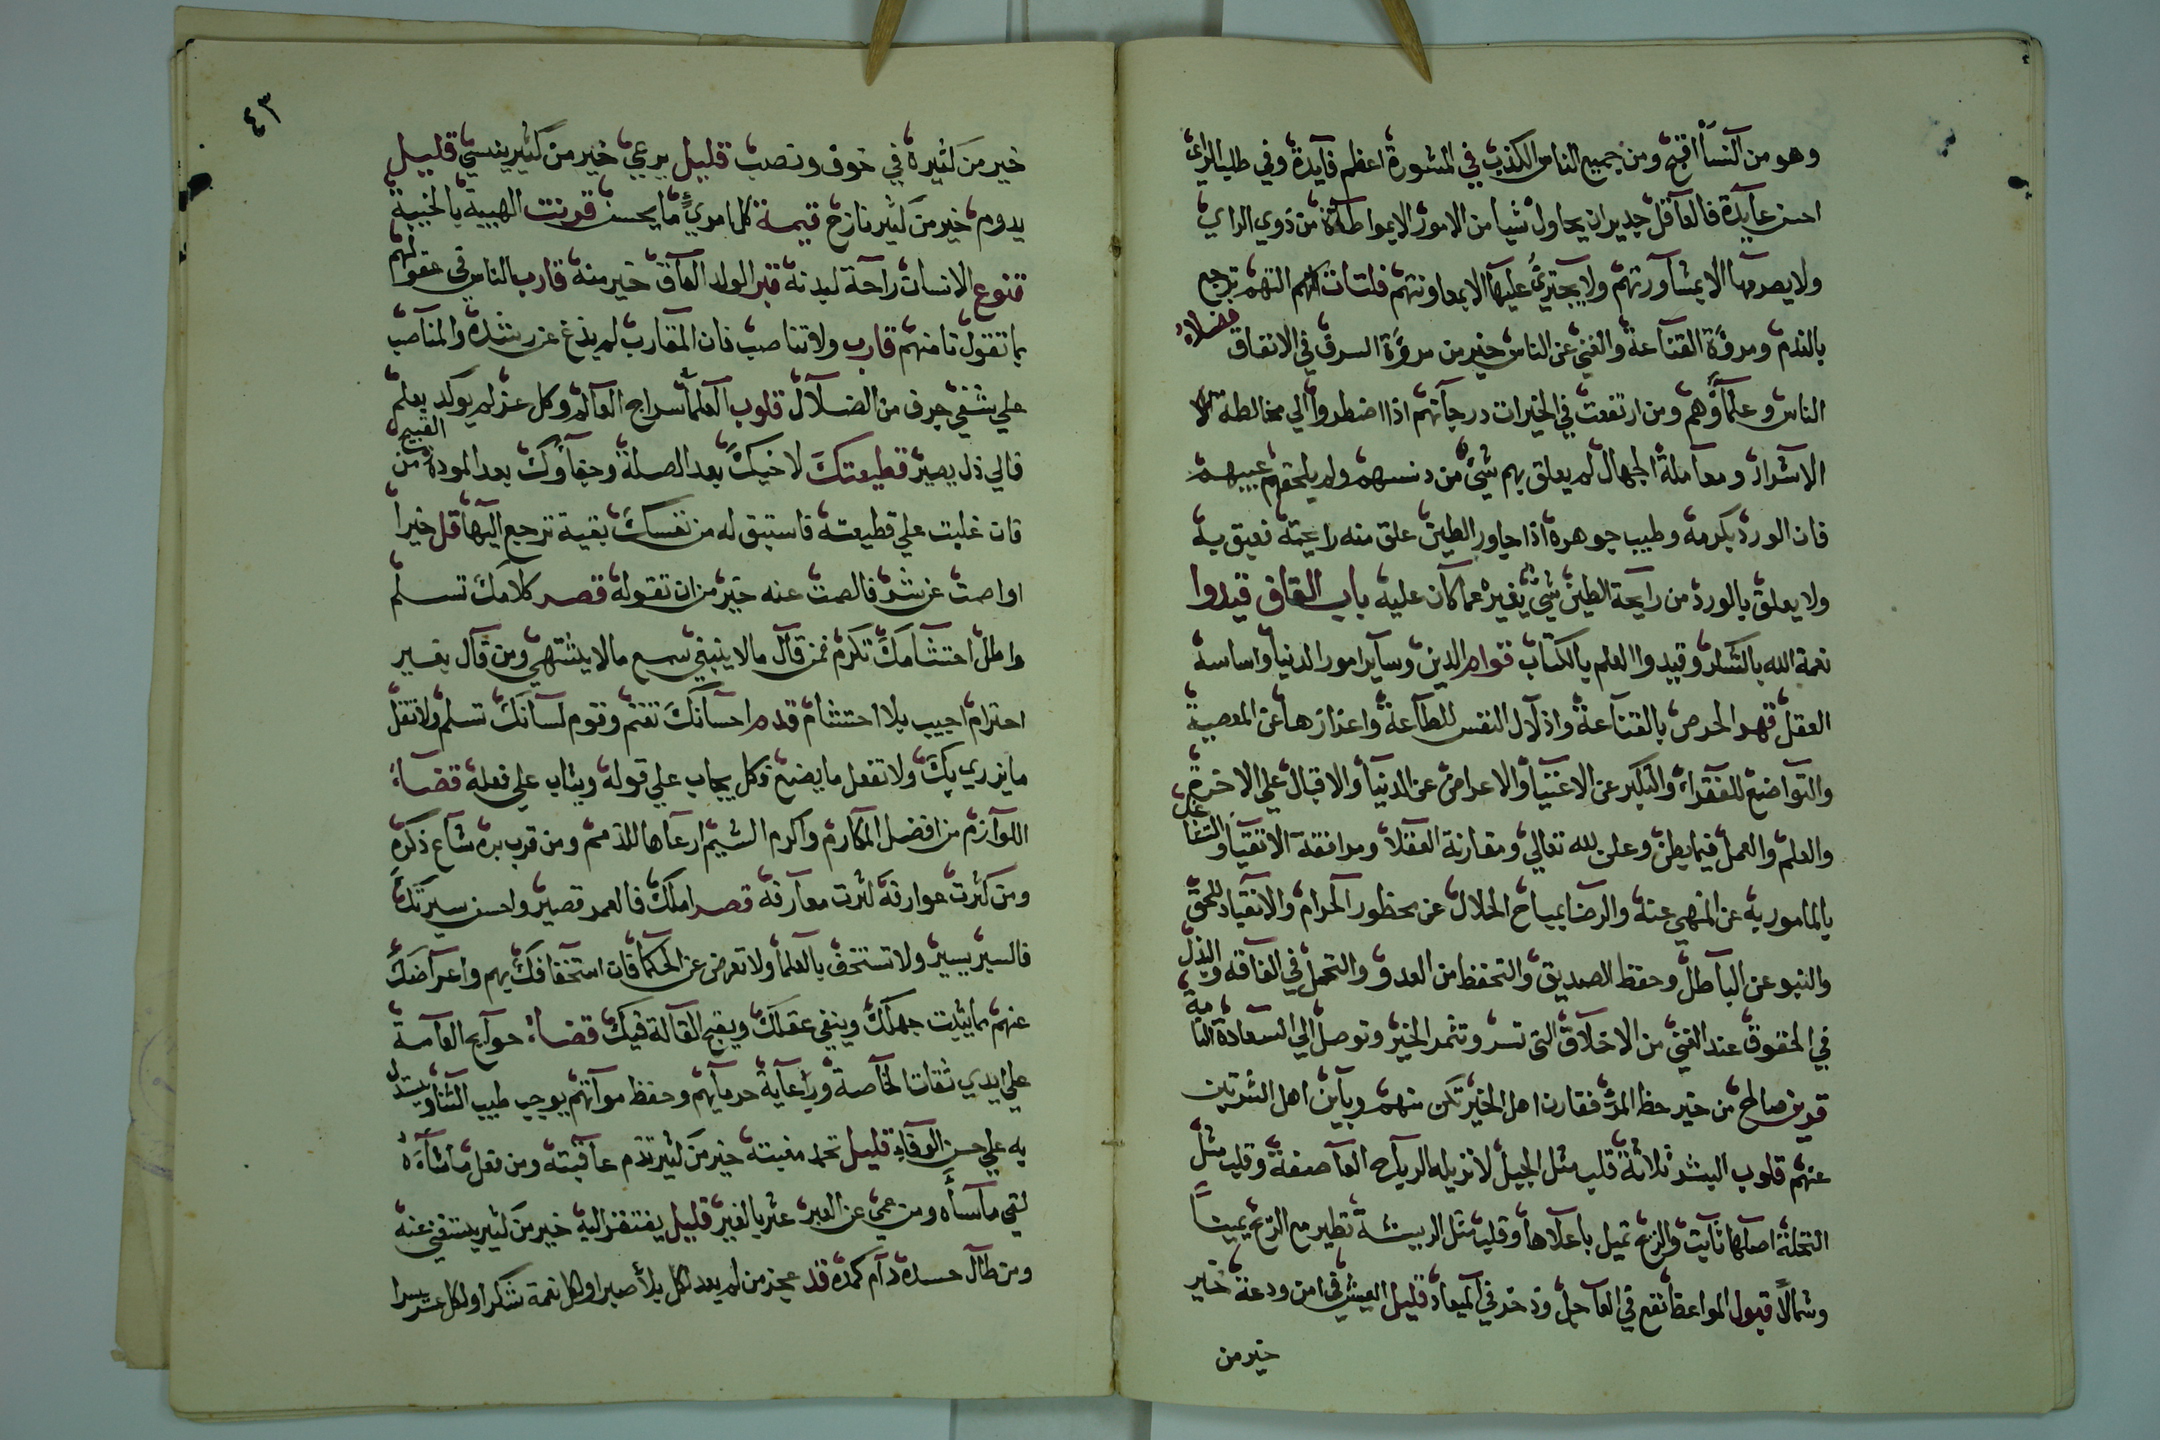 وهو من النسآ اقبح ومن جميع الناس الكذب في المشورة اعظم فايدة وفي طلب الراي
احسن عايدة فالعاقل جدير ان يحاول شيا من الامور الا بمواطاة من ذوي الراي
ولا يصرمها الا بمشاورتهم ولا يجتري عليها الا بمعاونتهم فلتات التهم ترجع
بالندم ومروة القناعة والغني عن الناس خير من مروة السرف في الانفاق فضلاء
الناس وعلمآوهم ومن ارتفعت في الخيرات درجاتهم اذا اضطروا الي مخالطة
الاشرار ومعاملة الجهال لم يعلق بهم شيء من دنسهم ولم يلحقهم عيبهم
فان الورد بكرمه وطيب جوهره اذا جاور الطين علق منه رايحته فعبق به
ولا يعلق بالورد من رايحة الطين شي يغيره عما كان عليه باب القاف قيدوا
نعمة الله بالشكر وقيدوا العلم بالكتاب قوام الدين وساير امور الدنيا واساسه
العقل قهر الحرص بالقناعة واذلال النفس للطاعة واعزازها عن المعصية
والتواضع للفقراء والتكبر عن الاغنيا والاعراض عن الدنيا والاقبال علي الاخرة
والعلم والعمل فيما بطن وعلن لله تعالي ومقارنة العقلا ومرافقة الاتقيا والتشاغل
بالمامور به عن المنهي عنه والرضا بمباح الحلال عن محظور الحرام والانقياد للحق
والنبو عن الباطل وحفظ الصديق والتحفظ من العدو والتحمل في الفاقه والبذل
في الحقوق عند الغني من الاخلاق التي تسر وتثمر الخير وتوصل الي السعادة التامة
قرين صالح من خير حظ المرء فقارن اهل الخير تكن منهم وباين اهل الشر تبن
عنهم قلوب البشر ثلاثة قلب مثل الجبل لا تزيله الرياح العاصفة وقلب مثل
النخلة اصلها ثابت والريح تميل باعلاها وقلب مثل الريشة تطير مع الريح يمينا
وشمالا قبول المواعظ نفع في العاجل وذخر في الميعاد قليل العيش في امن ودعة خير
خير من
٤٣
خير من كثيره في خوف ونصب قليل يرعي خير من كثير ينسي قليل
يدوم خير من كثير نازح قيمة كل امريء ما يحسن قرنت الهيبة بالخيبة
قنوع الانسان راحة لبدنه قبر الولد العاق خير منه قارب الناس في عقولهم
بما تقول تامنهم قارب ولا تناصب فان المقارب لم يزغ عن رشده والمناصب
علي شفي جرف من الضلال قلوب العلما سراج العالم وكل عز لم يوكد بعلم
فالي ذل يصير قطيعتك لاخيك بعد الصلة وجفآوك بعد المودة من القبيح
فان غلبت علي قطيعته فاستبق له من نفسك بقية ترجع اليها قل خيرا
او اصمت عن شر فالصمت عنه خير من ان تقوله قصر كلامك تسلم
واطل احتشامك تكرم فمن قال ما لا ينبغي سمع ما لا يشتهي ومن قال بغير
احترام اجيب بلا احتشام قدم احسانك تغنم وقوم لسانك تسلم ولا تقل
ما يزري بك ولا تفعل ما يضع فكل يجاب علي قوله ويثاب علي فعله قضاء
اللوازم من افضل المكارم واكرم الشيم ارعاها للذمم ومن قرب بره شاع ذكره
ومن كثرت عوارفه كثرت معارفه قصر املك فالعمر قصير واحسن سيرتك
فالسير يسير ولا تستخف بالعلما ولا تعرض عن الحكما فان استخفافك بهم واعراضك
عنهم مما يثبت جهلك وينفي عقلك ويقبح القالة فيك قضاء حوآيج العامة
علي ايدي ثقات الخاصة ورعاية حرماتهم وحفظ مواتهم يوجب طيب الثنا ويستدل
به علي حسن الوفاء قليل تحمد مغبته خير من كثير تذم عاقبته ومن فعل ما شآءه
لقي ما سآءه ومن عمي عن العبر عثر بالغير قليل يفتقر اليه خير من كثير يستغني عنه
ومن طال حسده دام كمده قد عجز من لم يعد لكل بلا صبرا ولكل نعمة شكرا ولكل عسر يسرا